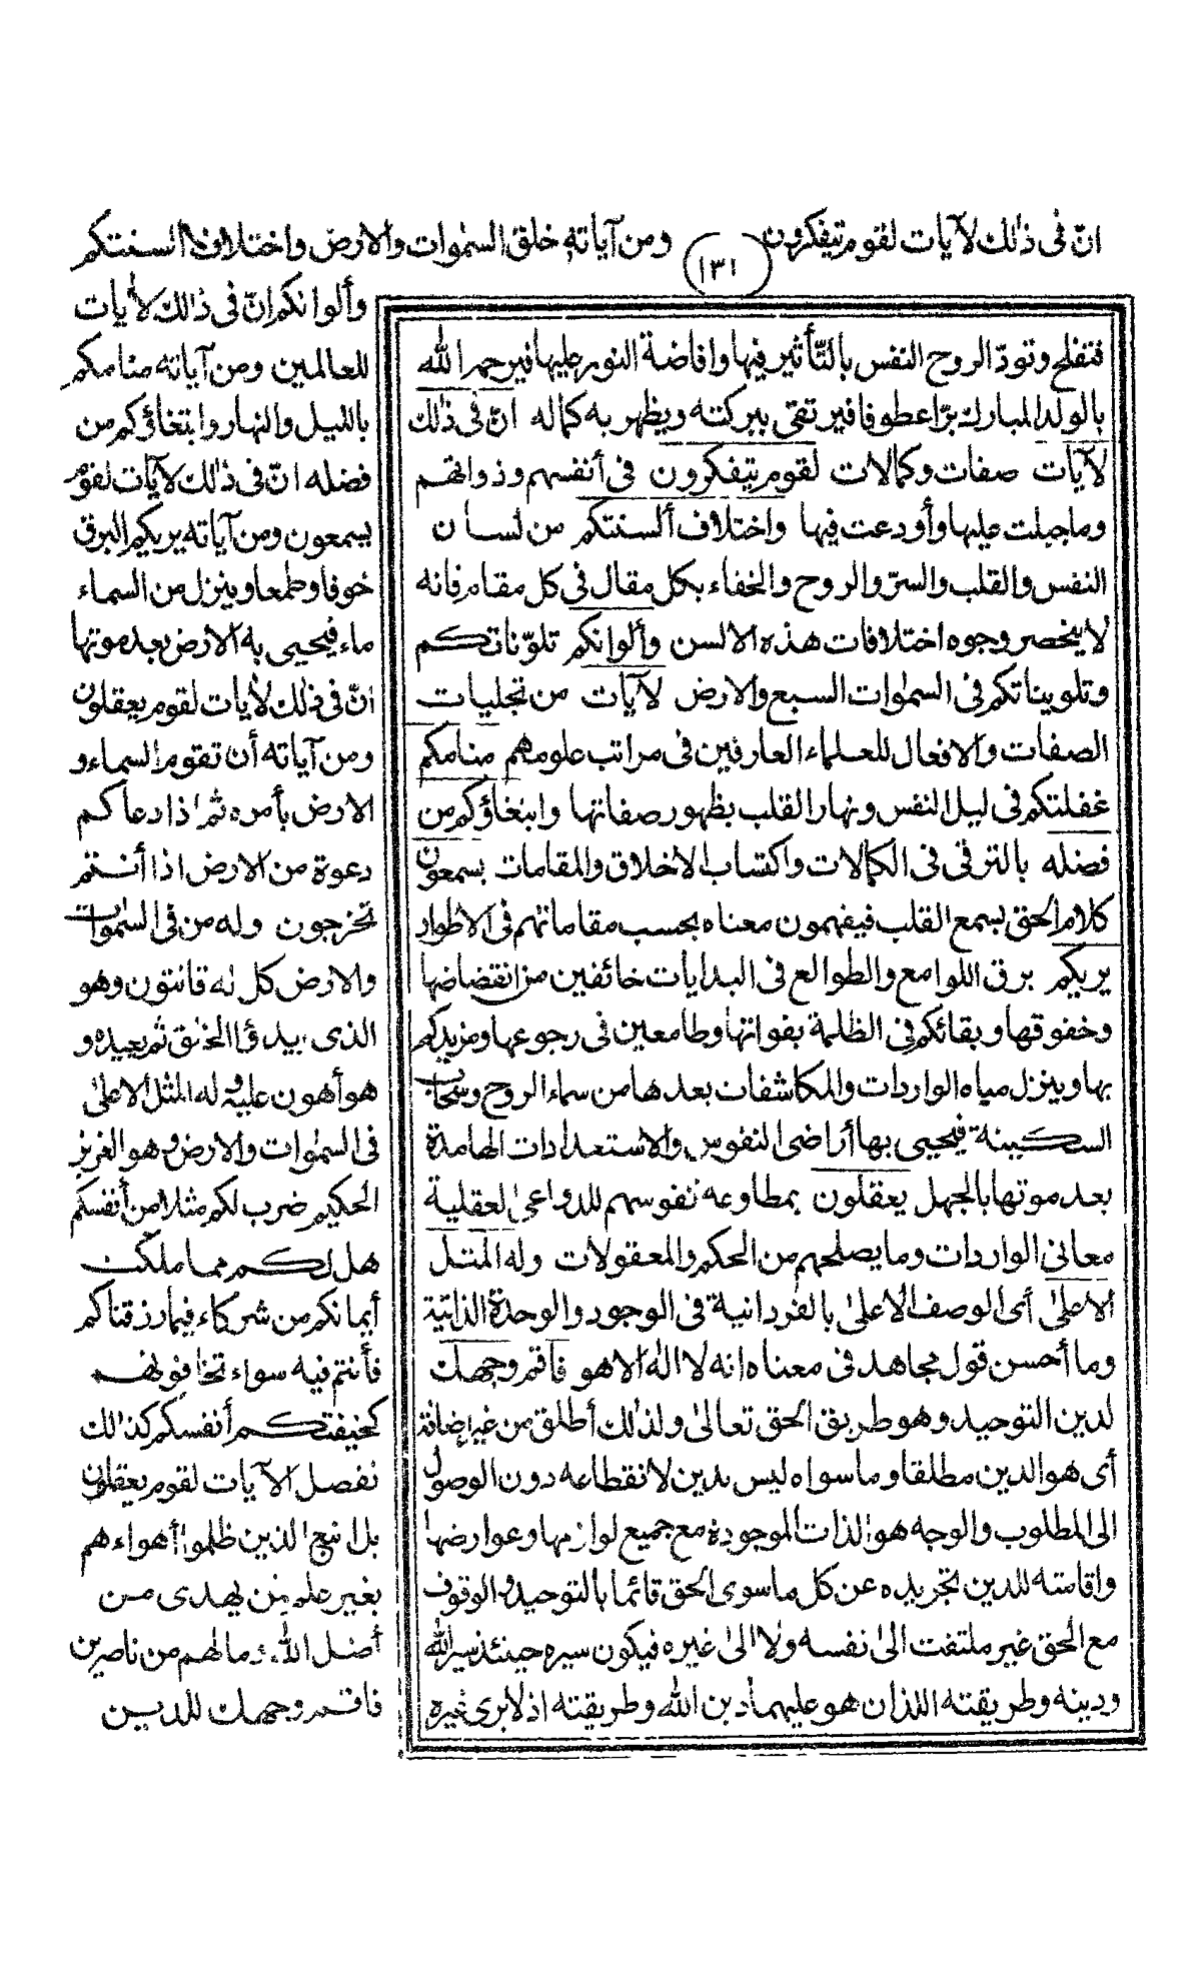 انّ فى ذٰلك لآيات لقوم يتفكرون (١٣١) ومن آياته خلق السمٰوات والارض واختلاف ألسنتكم
وألوانكم انّ فى ذٰلك لأيات
للعالمين ومن آياته منامكم
بالليل والنهار وابتغاؤكم من
فضله انّ فى ذٰلك لآيات لقوم
يسمعون ومن آياته يريكم البرق
خوفا وطمعا وينزل من السماء
ماء فيحيى به الارض بعد موتها
انّ فى ذٰلك لأيات لقوم يعقلون
ومن آياته أن تقوم السماء و
الارض بأمره ثم اذا دعاكم
دعوة من الارض اذا أنتم
تخرجون وله من فى السمٰوات
والارض كل له قانتون وهو
الذى يبدؤا الخلق ثم يعيده و
هو أهون عليه وله المثل الاعلىٰ
فى السمٰوات والارض وهو العزيز
الحكيم ضرب لكم مثلا من أنفسكم
هل لكم مما ملكت
أيمانكم من شركاء فيما رزقناكم
فأنتم فيه سواء تخافونهم
كخيفتكم أنفسكم كذٰلك
نفصل الآيات لقوم يعقلون
بل اتبع الذين ظلموا أهواءهم
بغير علم فمن يهدى من
أضل الله وما لهم من ناصرين
فاقم وجهك للدين
فتفلح وتودّ الروح النفس بالتّأثير فيها وافاضة النور عليها فيرحمها الله
بالولد المبارك برّا عطوفا فيرتقى ببركته ويظهر به كماله انّ فى ذٰلك
لآيات صفات وكمالات لقوم يتفكرون فى أنفسهم وذواتهم
وما جبلت عليها وأودعت فيها واختلاف ألسنتكم من لسان
النفس والقلب والسرّ والروح والخفاء بكل مقال فى كل مقام فانه
لا ينحصر وجوه اختلافات هذه الالسن وألوانكم تلوّناتكم
وتلويناتكم فى السمٰوات السبع والارض لآيات من تجليات
الصفات والافعال للعلماء العارفين فى مراتب علومهم منامكم
غفلتكم فى ليل النفس ونهار القلب بظهور صفاتها وابتغاؤكم من
فضله بالترقى فى الكمالات واكتساب الاخلاق والمقامات يسمعون
كلام الحق بسمع القلب فيفهمون معناه بحسب مقاماتهم فى الاطوار
يريكم برق اللوامع والطوالع فى البدايات خائفين من انقضاضها
وخفوقها وبقائكم فى الظلمة بفواتها وطامعين فى رجوعها ومزيدكم
بها وينزل مياه الواردات والمكاشفات بعدها من سماء الروح وسحاب
السكينة فيحيى بها أراضى النفوس والاستعدادات الهامدة
بعد موتها بالجهل يعقلون بمطاوعه نفوسهم للدواعى العقلية
معانى الواردات وما يصلحهم من الحكم والمعقولات وله المثل
الاعلىٰ أى الوصف الاعلىٰ بالفردانية فى الوجود والوحدة الذاتية
وما أحسن قول مجاهد فى معناه انه لا اله الا هو فاقم وجهك
لدين التوحيد وهو طريق الحق تعالىٰ ولذٰلك أطلق من غير اضافة
أى هو الدين مطلقا وما سواه ليس بدين لانقطاعه دون الوصول
الى المطلوب والوجه هو الذات الموجودة مع جميع لوازمها وعوارضها
واقامته للدين تجريده عن كل ما سوى الحق قائما بالتوحيد والوقوف
مع الحق غير ملتفت الىٰ نفسه ولا الىٰ غيره فيكون سيره حينئذ سير الله
ودينه وطريقته اللذان هو عليهما دين الله وطريقته اذ لا يرى غيره